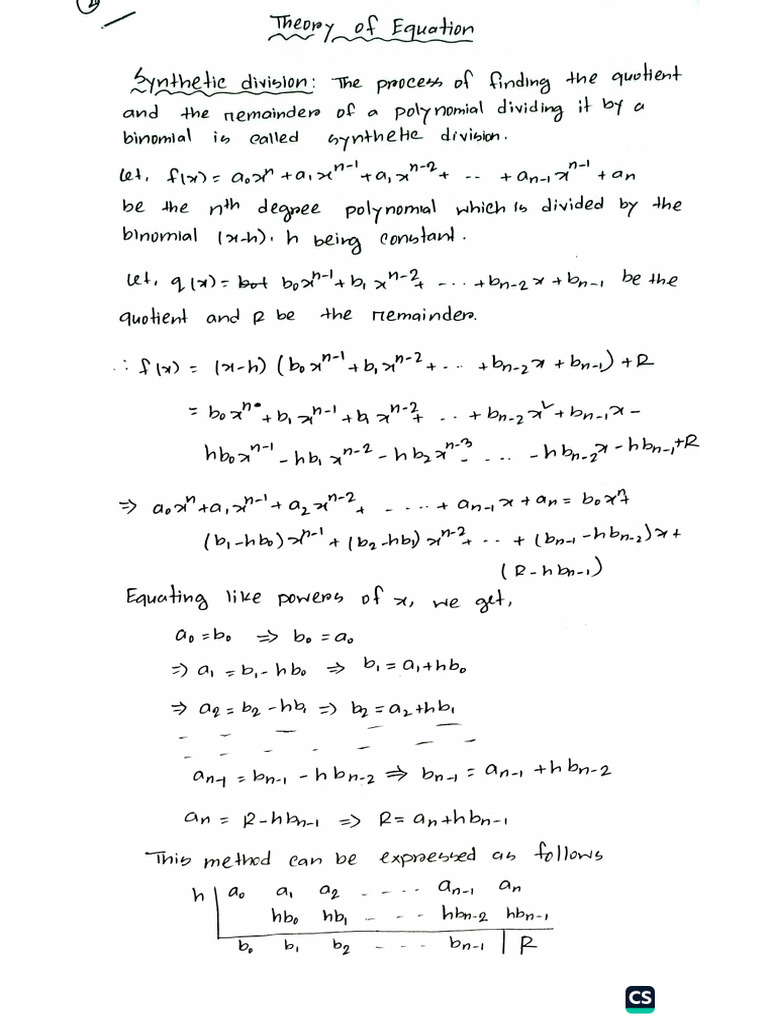 Theory of Equation
Synthetic division: The process of finding the quotient
and the remainder of a polynomial dividing it by a
binomial is called synthetic division.
Let, f(x) = a₀xⁿ + a₁xⁿ⁻¹ + a₁xⁿ⁻² + .. .. + aₙ₋₁xⁿ⁻¹ + aₙ
be the nᵗʰ degree polynomial which is divided by the
binomial (x-h), h being constant.
Let, q(x) = b₀xⁿ⁻¹ + b₁xⁿ⁻² + ..... + bₙ₋₂x + bₙ₋₁ be the
quotient and R be the remainder.
∴ f(x) = (x-h) (b₀xⁿ⁻¹ + b₁xⁿ⁻² + .. .. + bₙ₋₂x + bₙ₋₁) + R
= b₀xⁿ + b₁xⁿ⁻¹ + b xⁿ⁻² + .. .. + bₙ₋₂x² + bₙ₋₁x -
hb₀xⁿ⁻¹ - hb₁xⁿ⁻² - hb₂xⁿ⁻³ - .. ... - hbₙ₋₂x - hbₙ₋₁ + R
⇒ a₀xⁿ + a₁xⁿ⁻¹ + a₂xⁿ⁻² + . .... + aₙ₋₁x + aₙ = b₀xⁿ +
(b₁-hb₀)xⁿ⁻¹ + (b₂-hb₁)xⁿ⁻² + .. .. + (bₙ₋₁-hbₙ₋₂)x +
(R-hbₙ₋₁)
Equating like powers of x, we get,
a₀ = b₀ ⇒ b₀ = a₀
⇒ a₁ = b₁ - hb₀ ⇒ b₁ = a₁ + hb₀
⇒ a₂ = b₂ - hb₁ ⇒ b₂ = a₂ + hb₁
- - - - - -
- - - - - -
aₙ₋₁ = bₙ₋₁ - hbₙ₋₂ ⇒ bₙ₋₁ = aₙ₋₁ + hbₙ₋₂
aₙ = R - hbₙ₋₁ ⇒ R = aₙ + hbₙ₋₁
This method can be expressed as follows
h | a₀ a₁ a₂ - .... aₙ₋₁ aₙ
hb₀ hb₁ - - - - hbₙ₋₂ hbₙ₋₁
b₀ b₁ b₂ - - - - bₙ₋₁ | R
CS